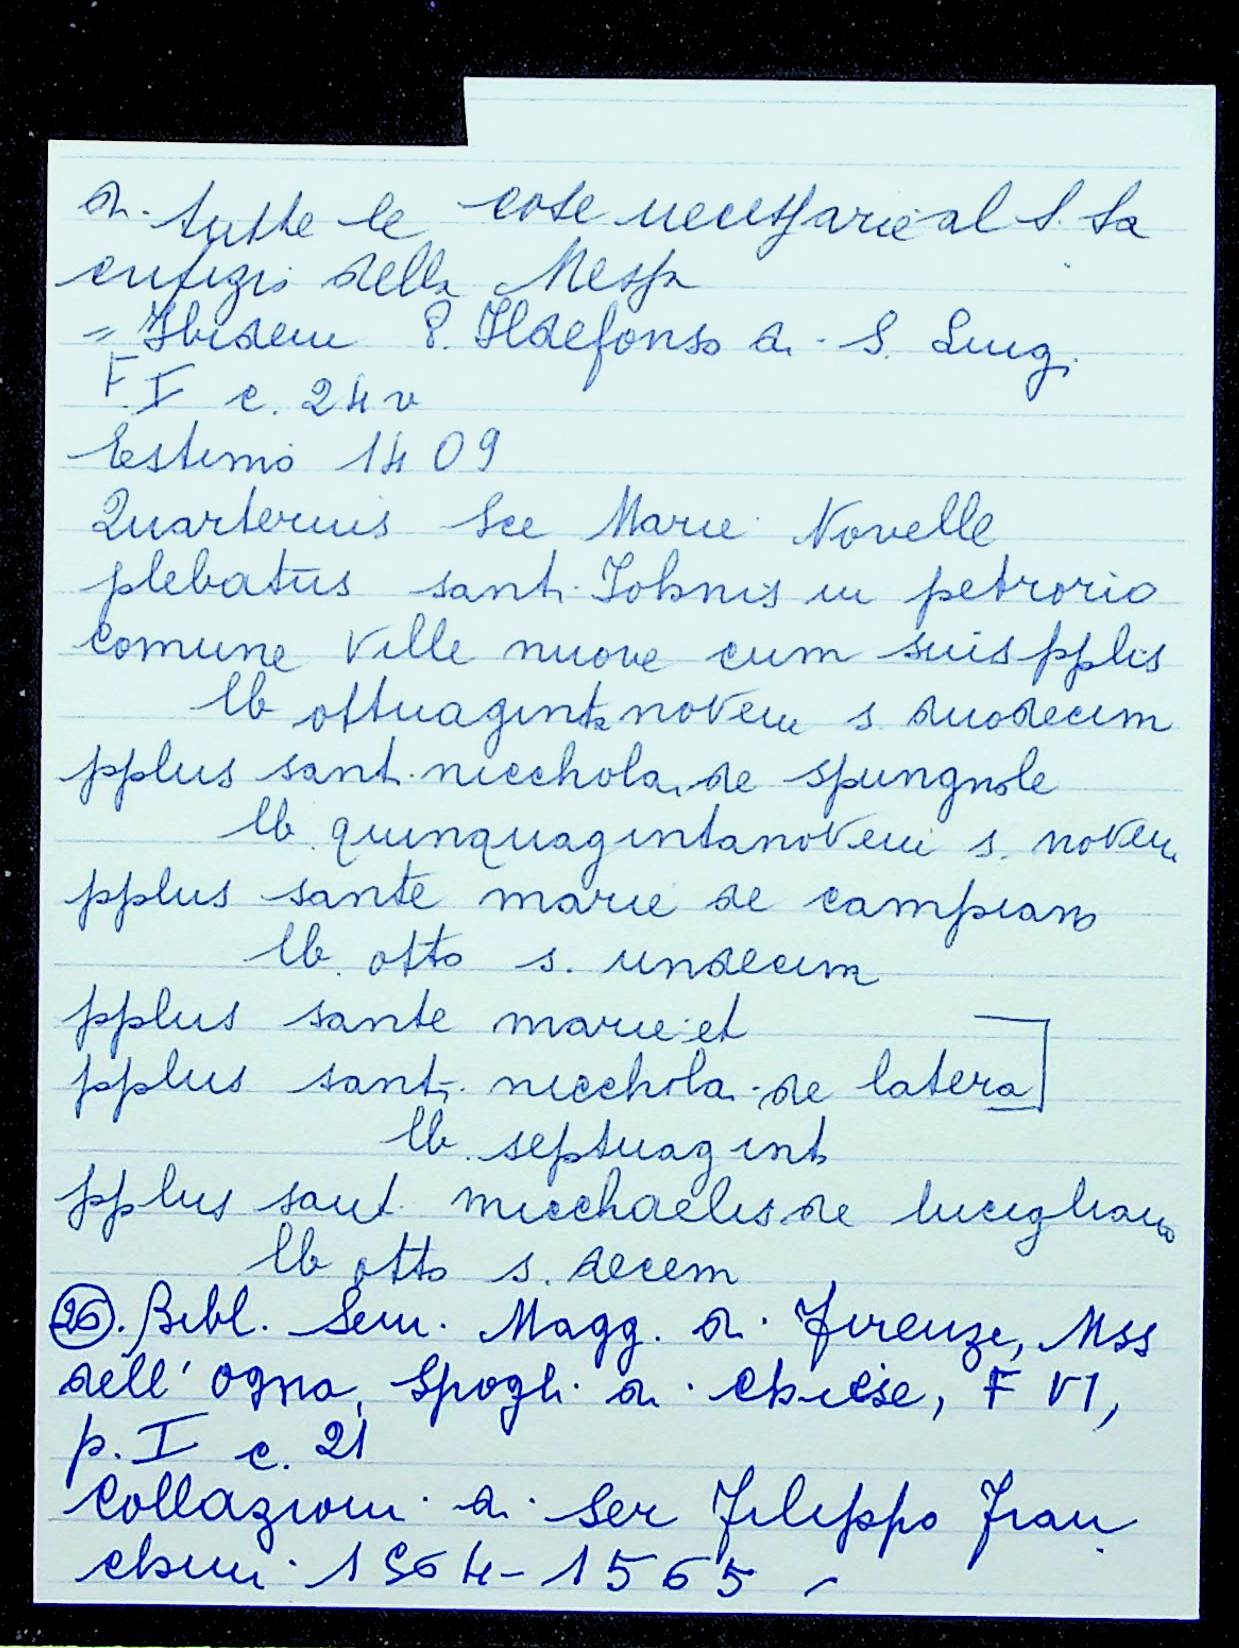 di tutte le cose necessarie al S. Sa
crifizio della Messa
= Ibidem P. Ildefonso di S. Luigi
F. I c. 24 v
Estimo 1409
Quarternus Sce Marie Novelle
plebatus santi Johnis in petrorio
comune Ville nuove cum suis pplis
lb ottuaginta novem s duodecim
pplus santi niccholai de spungnole
lb. quinquagintanovem s. novem
pplus sante marie de campiano
lb. otto s. undecim
pplus sante marie et
pplus santi niccholai de latera
lb. septuaginta
pplus santi micchaelis de lucigliano
lb otto s. decem
26. Bibl. Sem. Magg. di Firenze, Mss
dell' Ogna, Spogli di Chiese, F VI,
p. I c. 21
Collazioni di Ser Filippo Fran
chini 1564-1565